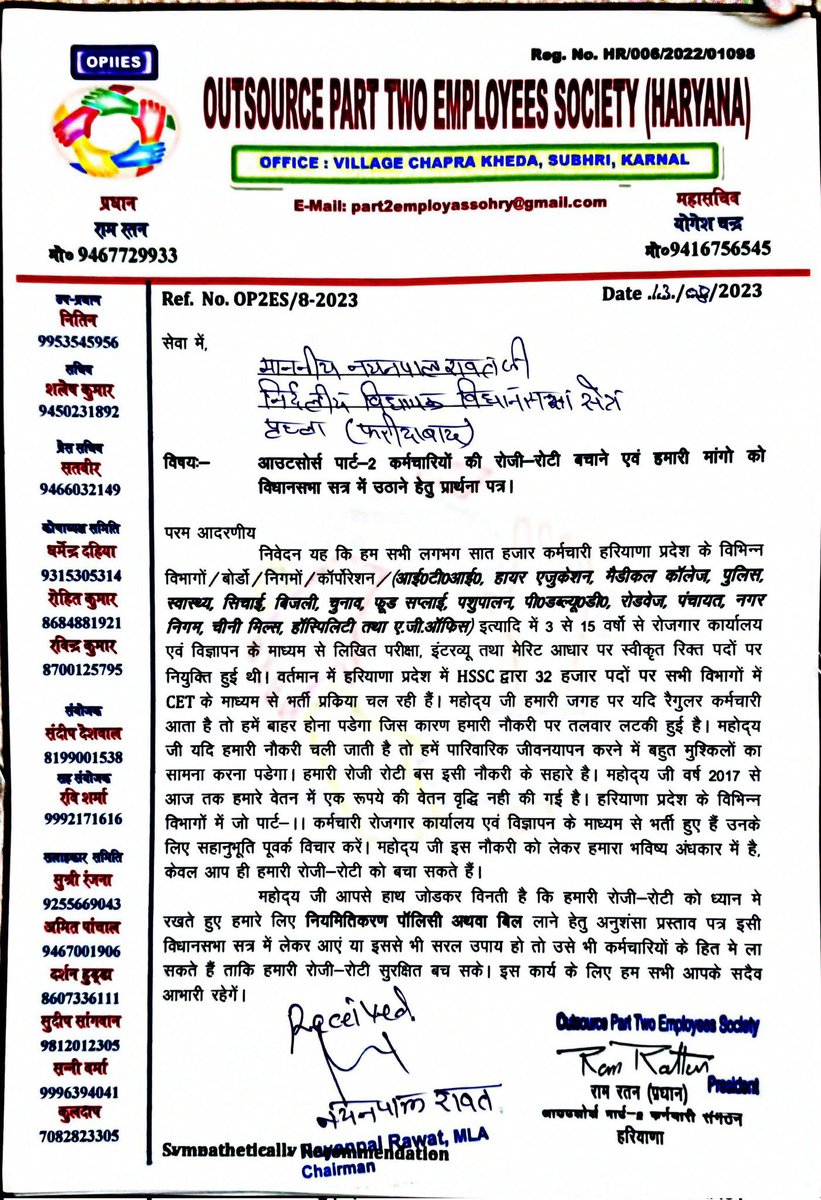 OPIIES
Reg. No. HR/006/2022/01098
OUTSOURCE PART TWO EMPLOYEES SOCIETY (HARYANA)
OFFICE : VILLAGE CHAPRA KHEDA, SUBHRI, KARNAL
E-Mail: part2employassohry@gmail.com
प्रधान
राम रतन
मो० 9467729933
महासचिव
योगेश चन्द्र
मो०9416756545
उप-प्रधान
नितिन
9953545956
सचिव
शलेष कुमार
9450231892
प्रेस सचिव
सतबीर
9466032149
कोषाध्यक्ष समिति
धर्मेन्द्र दहिया
9315305314
रोहित कुमार
8684881921
रविन्द्र कुमार
8700125795
संयोजक
संदीप देशवाल
8199001538
सह संयोजक
रवि शर्मा
9992171616
सलाहकार समिति
सुश्री रंजना
9255669043
अमित पांचाल
9467001906
दर्शन हुड्डा
8607336111
सुदीप सांगवान
9812012305
सन्नी वर्मा
9996394041
कुलदीप
7082823305
Ref. No. OP2ES/8-2023
Date .13./08/2023
सेवा में,
माननीय नयनपाल रावत जी
निर्दलीय विधायक विधानसभा क्षेत्र
पृथला (फरीदाबाद)
विषयः- आउटसोर्स पार्ट-2 कर्मचारियों की रोजी-रोटी बचाने एवं हमारी मांगो को
विधानसभा सत्र में उठाने हेतु प्रार्थना पत्र।
परम आदरणीय
निवेदन यह कि हम सभी लगभग सात हजार कर्मचारी हरियाणा प्रदेश के विभिन्न
विभागों/बोर्डो/निगमों/कॉर्पोरेशन/(आई0टी0आई0, हायर एजुकेशन, मैडीकल कॉलेज, पुलिस,
स्वास्थ्य, सिचाई, बिजली, चुनाव, फूड सप्लाई, पशुपालन, पी0डब्ल्यू0डी0, रोडवेज, पंचायत, नगर
निगम, चीनी मिल्स, हॉस्पिलिटी तथा ए.जी.ऑफिस) इत्यादि में 3 से 15 वर्षो से रोजगार कार्यालय
एवं विज्ञापन के माध्यम से लिखित परीक्षा, इंटरव्यू तथा मेरिट आधार पर स्वीकृत रिक्त पदों पर
नियुक्ति हुई थी। वर्तमान में हरियाणा प्रदेश में HSSC द्वारा 32 हजार पदों पर सभी विभागों में
CET के माध्यम से भर्ती प्रकिया चल रही हैं। महोद्य जी हमारी जगह पर यदि रैगुलर कर्मचारी
आता है तो हमें बाहर होना पडेगा जिस कारण हमारी नौकरी पर तलवार लटकी हुई है। महोद्य
जी यदि हमारी नौकरी चली जाती है तो हमें पारिवारिक जीवनयापन करने में बहुत मुश्किलों का
सामना करना पडेगा। हमारी रोजी रोटी बस इसी नौकरी के सहारे है। महोद्य जी वर्ष 2017 से
आज तक हमारे वेतन में एक रूपये की वेतन वृद्धि नही की गई है। हरियाणा प्रदेश के विभिन्न
विभागों में जो पार्ट-।। कर्मचारी रोजगार कार्यालय एवं विज्ञापन के माध्यम से भर्ती हुए हैं उनके
लिए सहानुभूति पूवर्क विचार करें। महोद्य जी इस नौकरी को लेकर हमारा भविष्य अंधकार में है,
केवल आप ही हमारी रोजी-रोटी को बचा सकते हैं।
महोद्य जी आपसे हाथ जोडकर विनती है कि हमारी रोजी-रोटी को ध्यान मे
रखते हुए हमारे लिए नियमितिकरण पॉलिसी अथवा बिल लाने हेतु अनुशंसा प्रस्ताव पत्र इसी
विधानसभा सत्र में लेकर आएं या इससे भी सरल उपाय हो तो उसे भी कर्मचारियों के हित मे ला
सकते हैं ताकि हमारी रोजी-रोटी सुरक्षित बच सके। इस कार्य के लिए हम सभी आपके सदैव
आभारी रहेगें।
Received
नयनपाल रावत
Nayanpal Rawat, MLA
Chairman
Sympathetically Recommendation
Outsource Part Two Employees Society
Ram Rattan
President
राम रतन (प्रधान)
आउटसोर्स पार्ट-2 कर्मचारी संगठन
हरियाणा